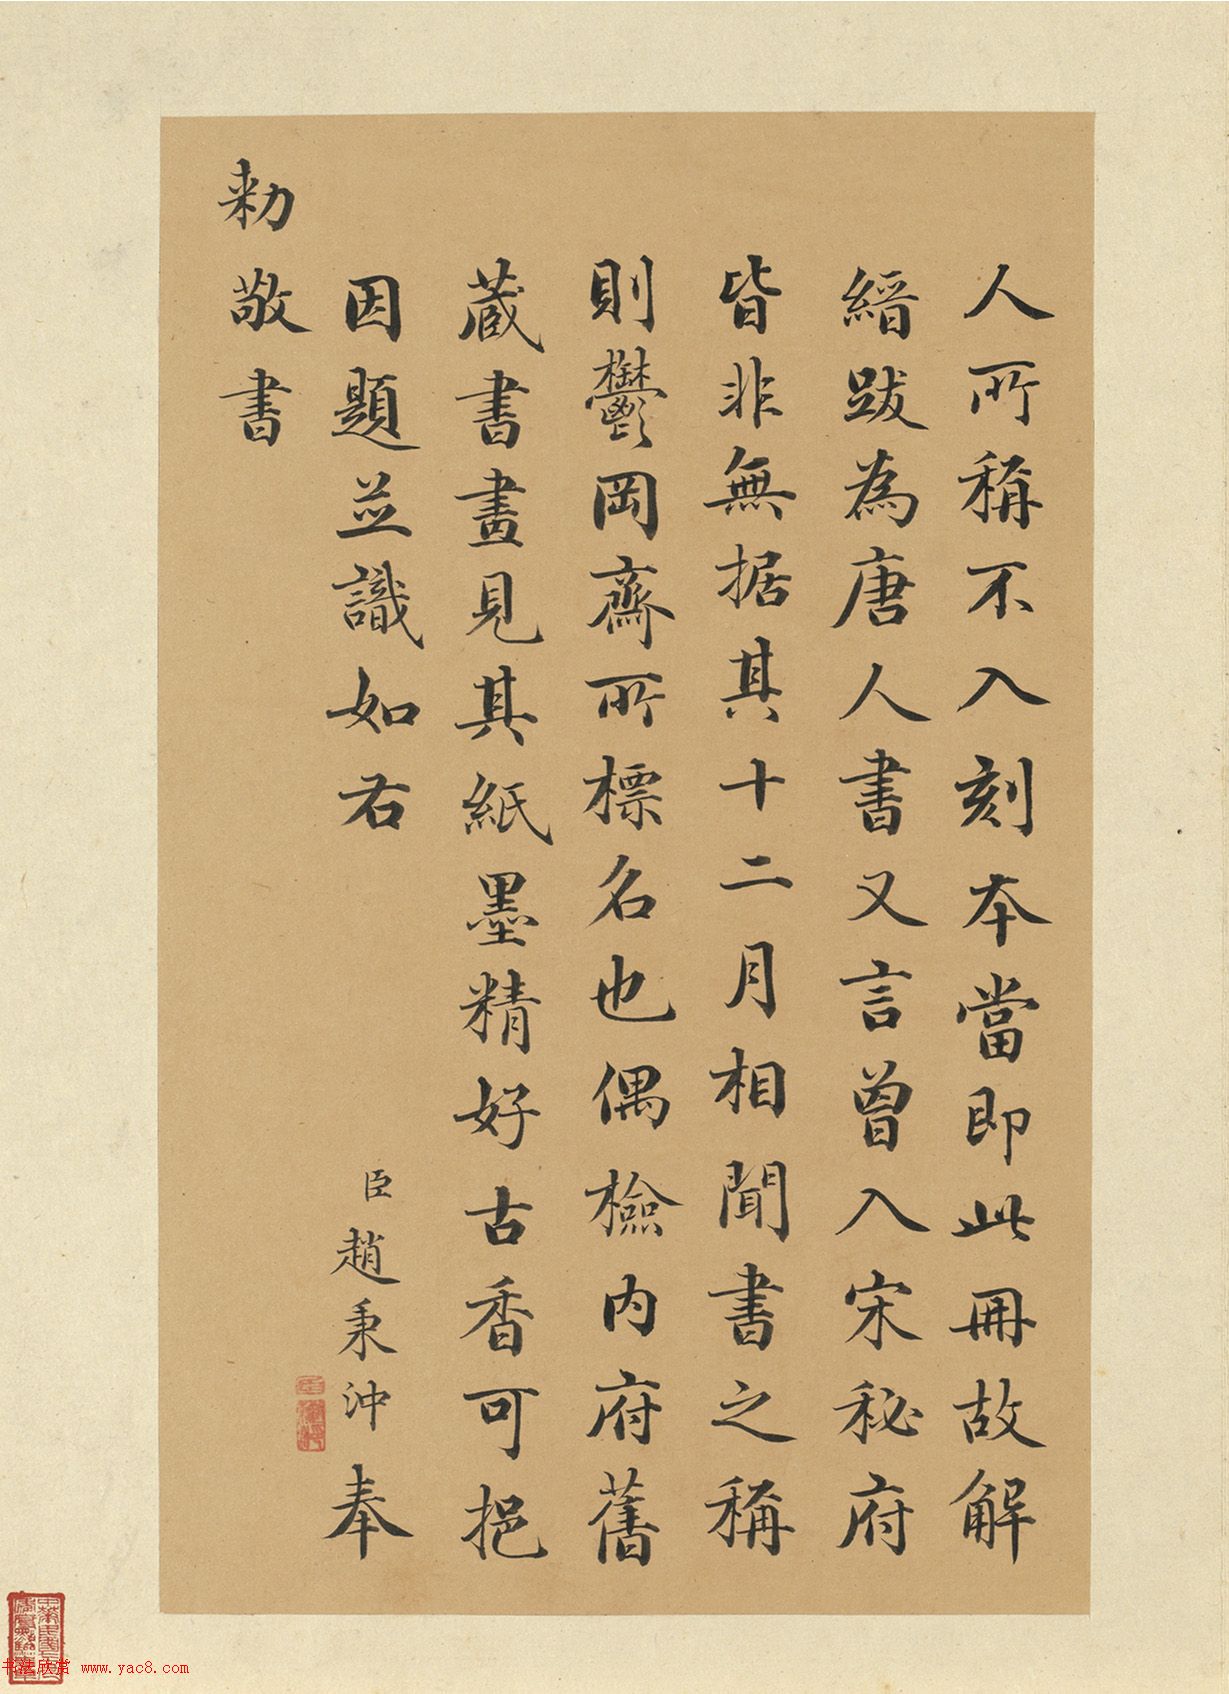 人所稱不入刻本當即此冊故解
縉跋為唐人書又言曾入宋秘府
皆非無据其十二月相聞書之稱
則鬱岡齋所標名也偶檢內府舊
蔵書畫見其紙墨精好古香可挹
因題並識如右
臣趙秉沖奉
勅敬書
书法欣赏 www.yac8.com